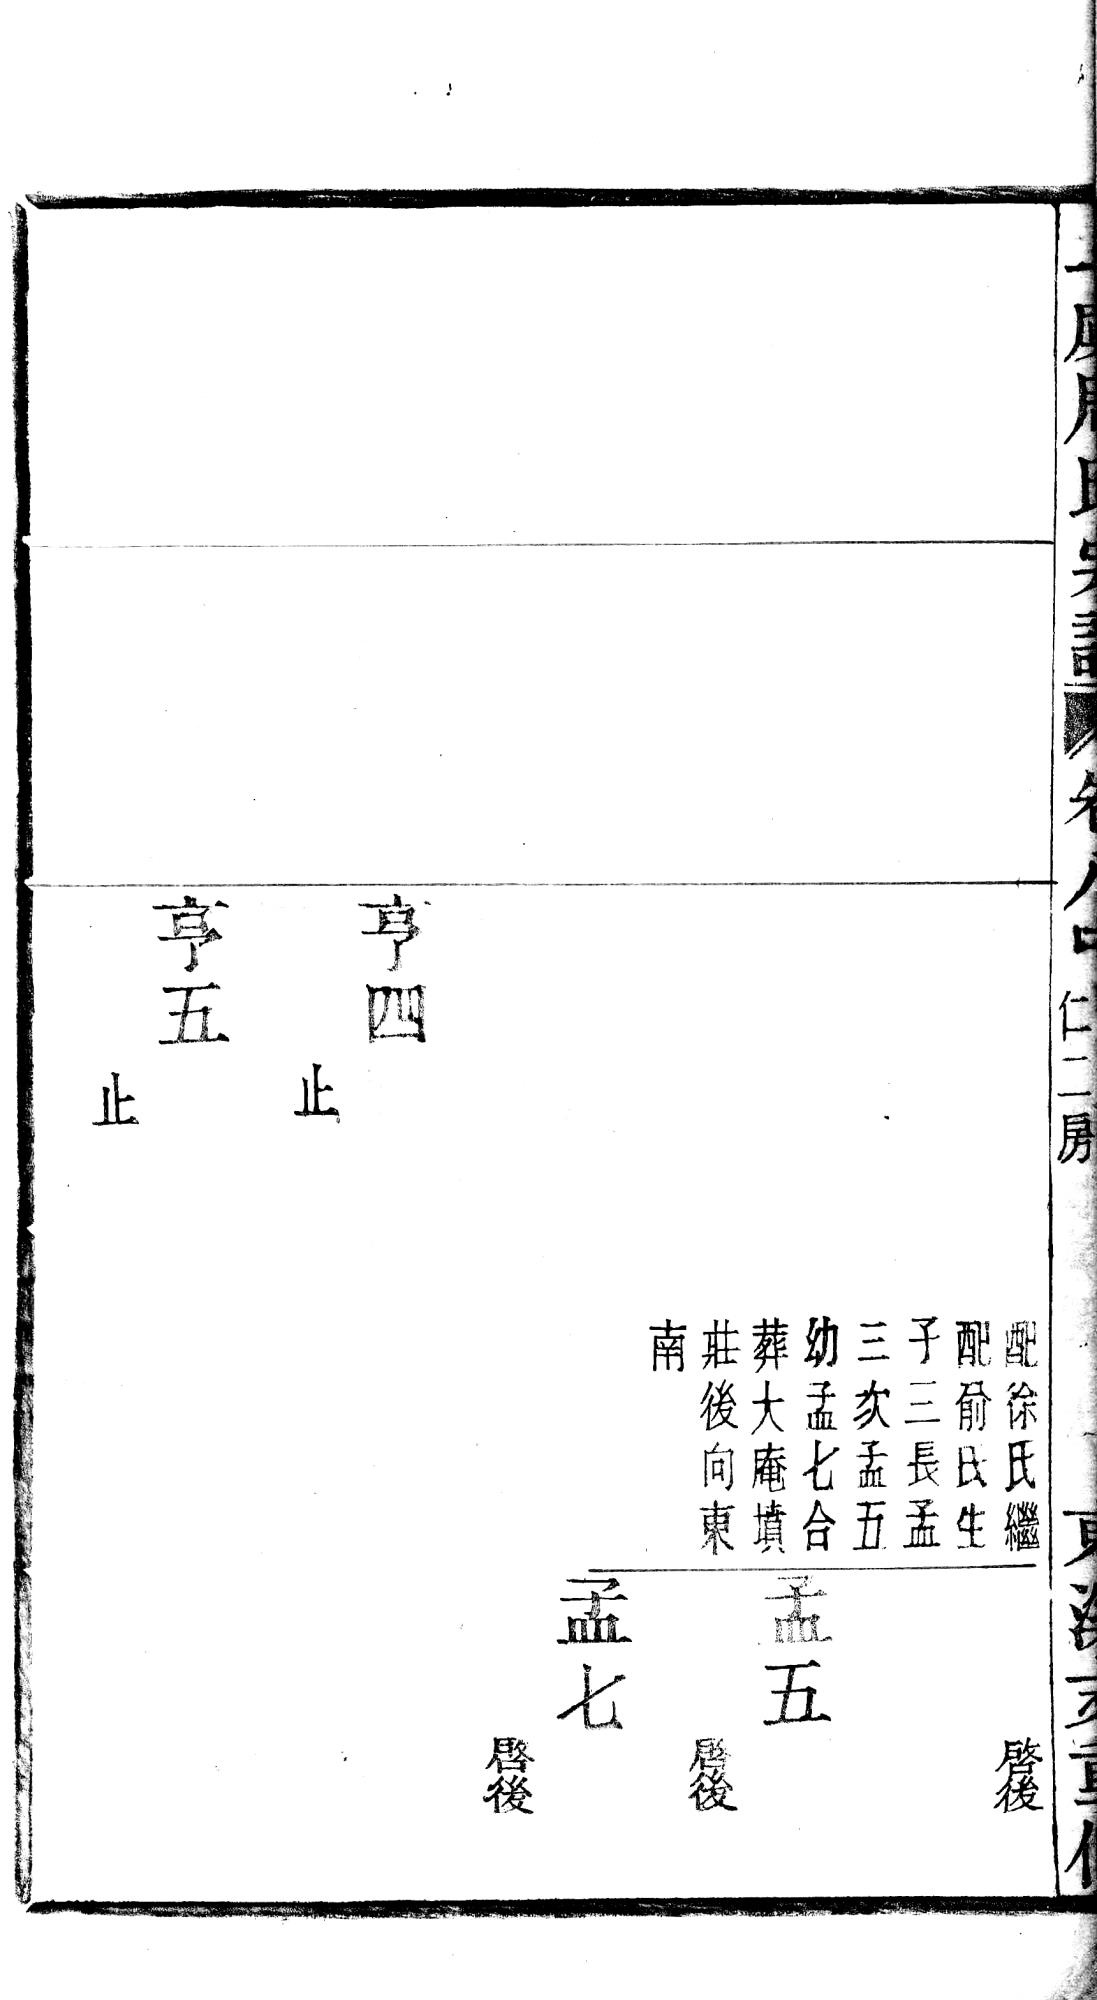 卷八中
仁二房
配徐氏繼
配俞氏生
子三長孟
三次孟五
幼孟七合
葬大庵墳
莊後向東
南
啓後
孟五
啓後
孟七
啓後
亨四
止
亨五
止